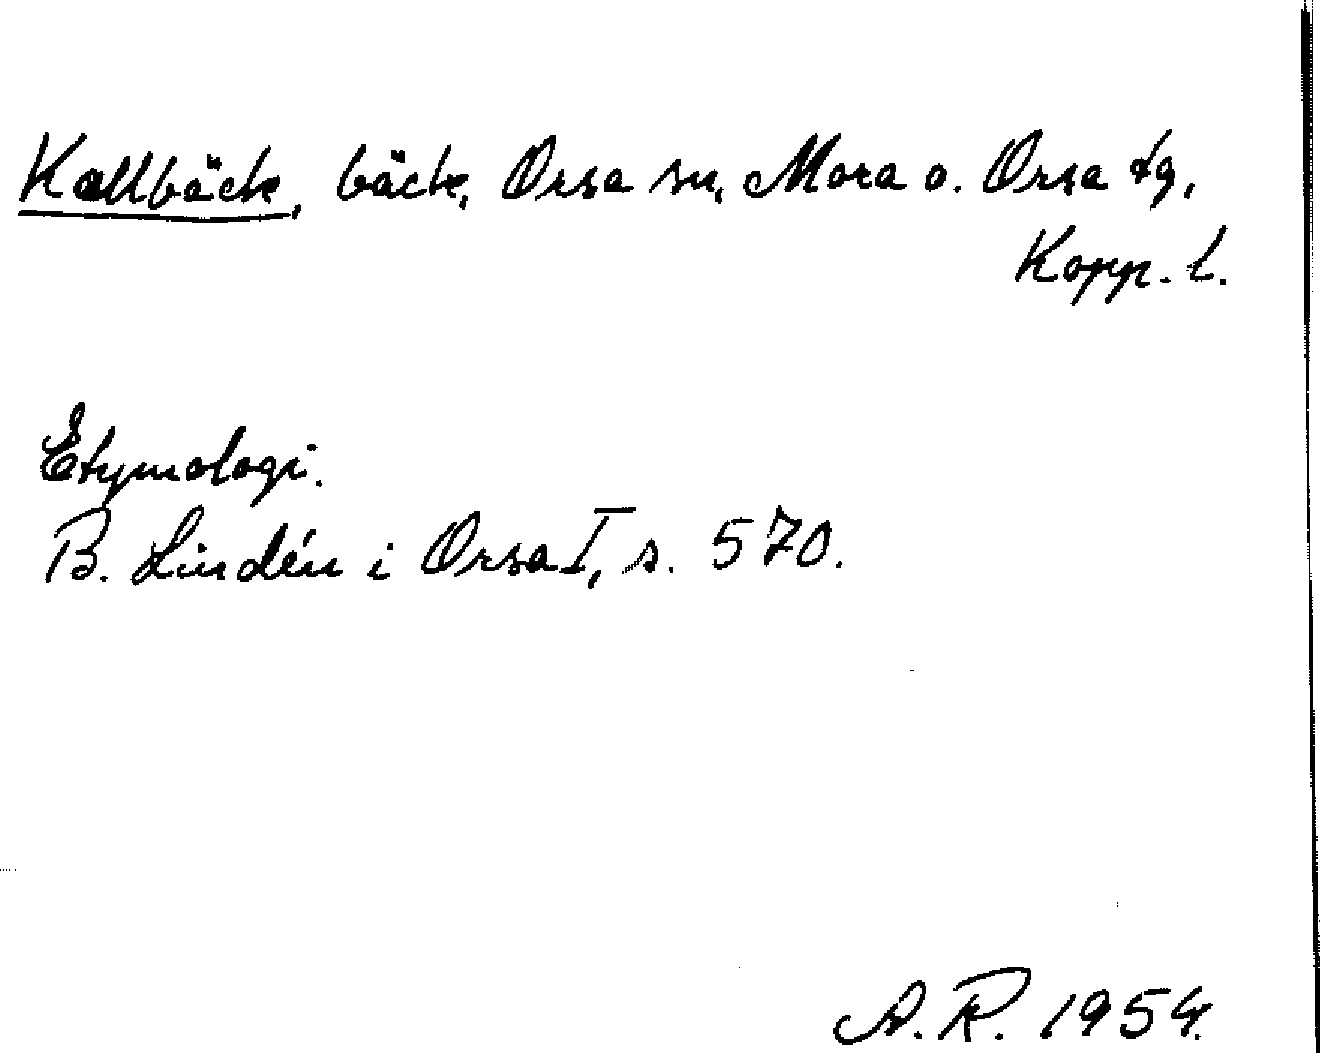 Kallbäck, bäck, Orsa sn, Mora o. Orsa tg,
Kopp. l.
Etymologi.
B. Lindén i Orsa I, s. 570.
A. R. 1954.